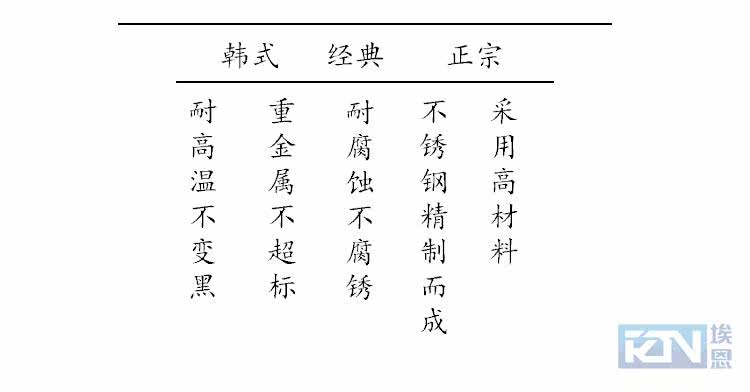 韩式 经典 正宗
采用高材料
不锈钢精制而成
耐腐蚀不腐锈
重金属不超标
耐高温不变黑
KTN 埃恩